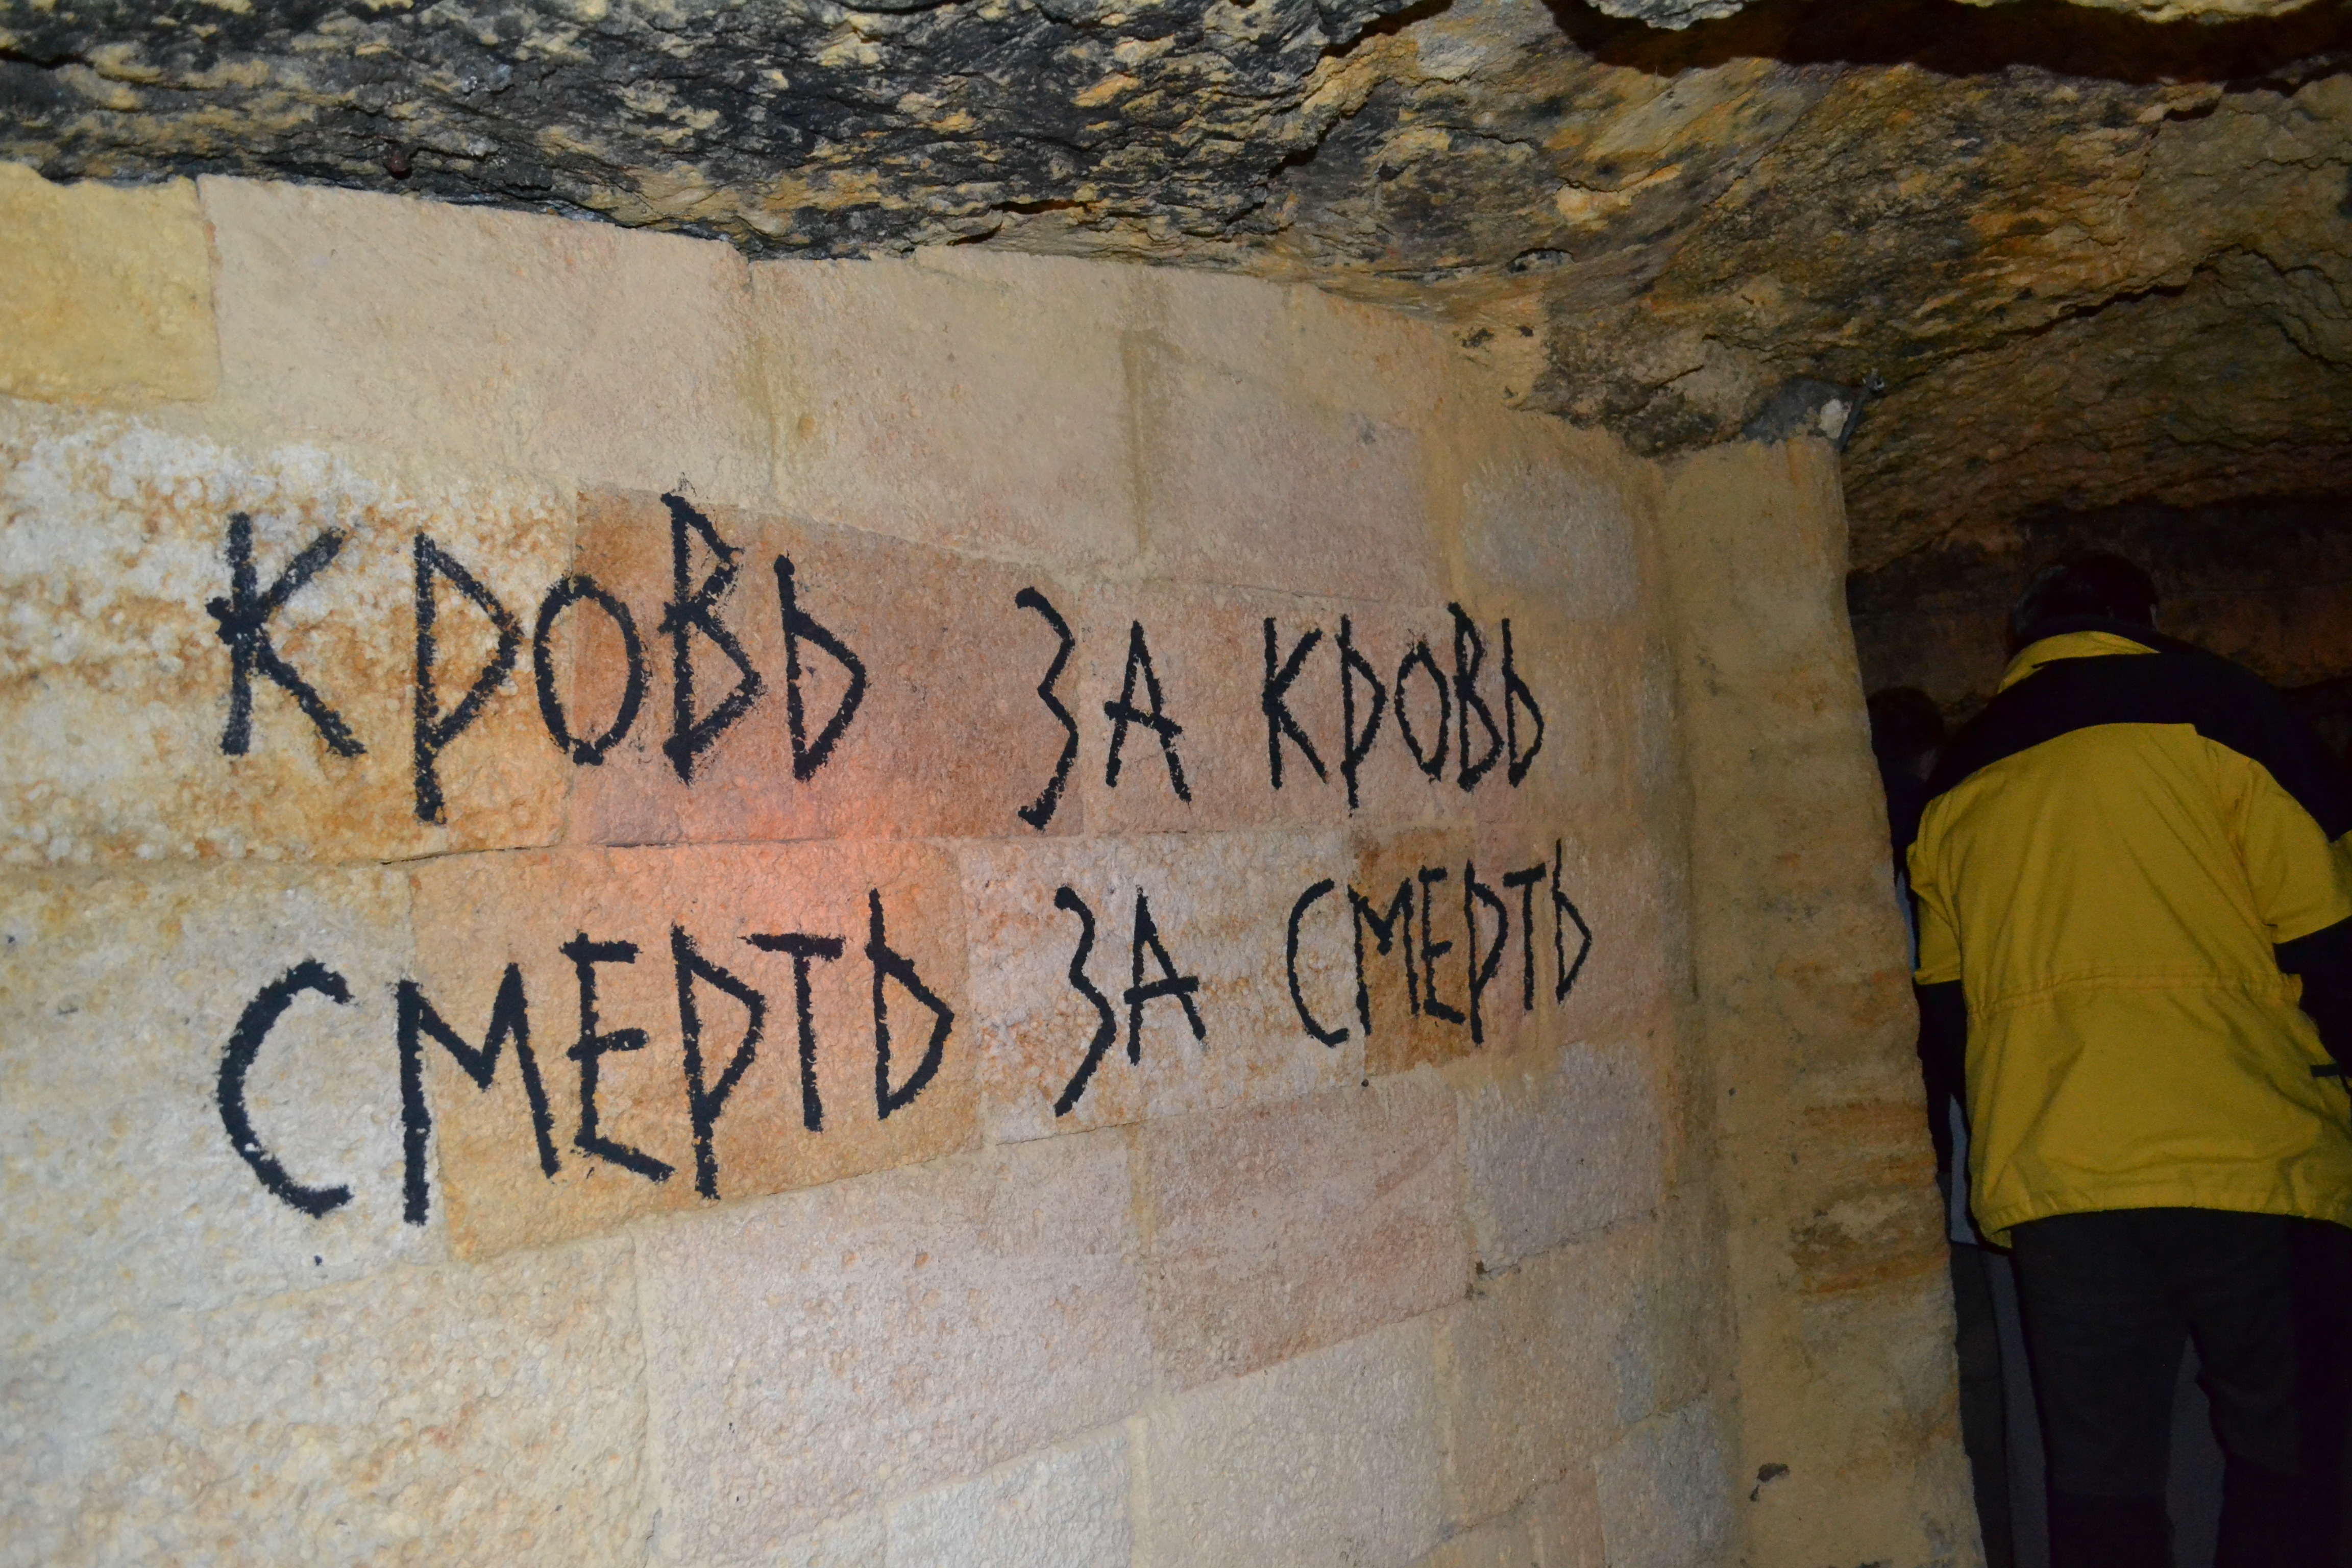 КРОВЬ ЗА КРОВЬ
СМЕРТЬ ЗА СМЕРТЬ